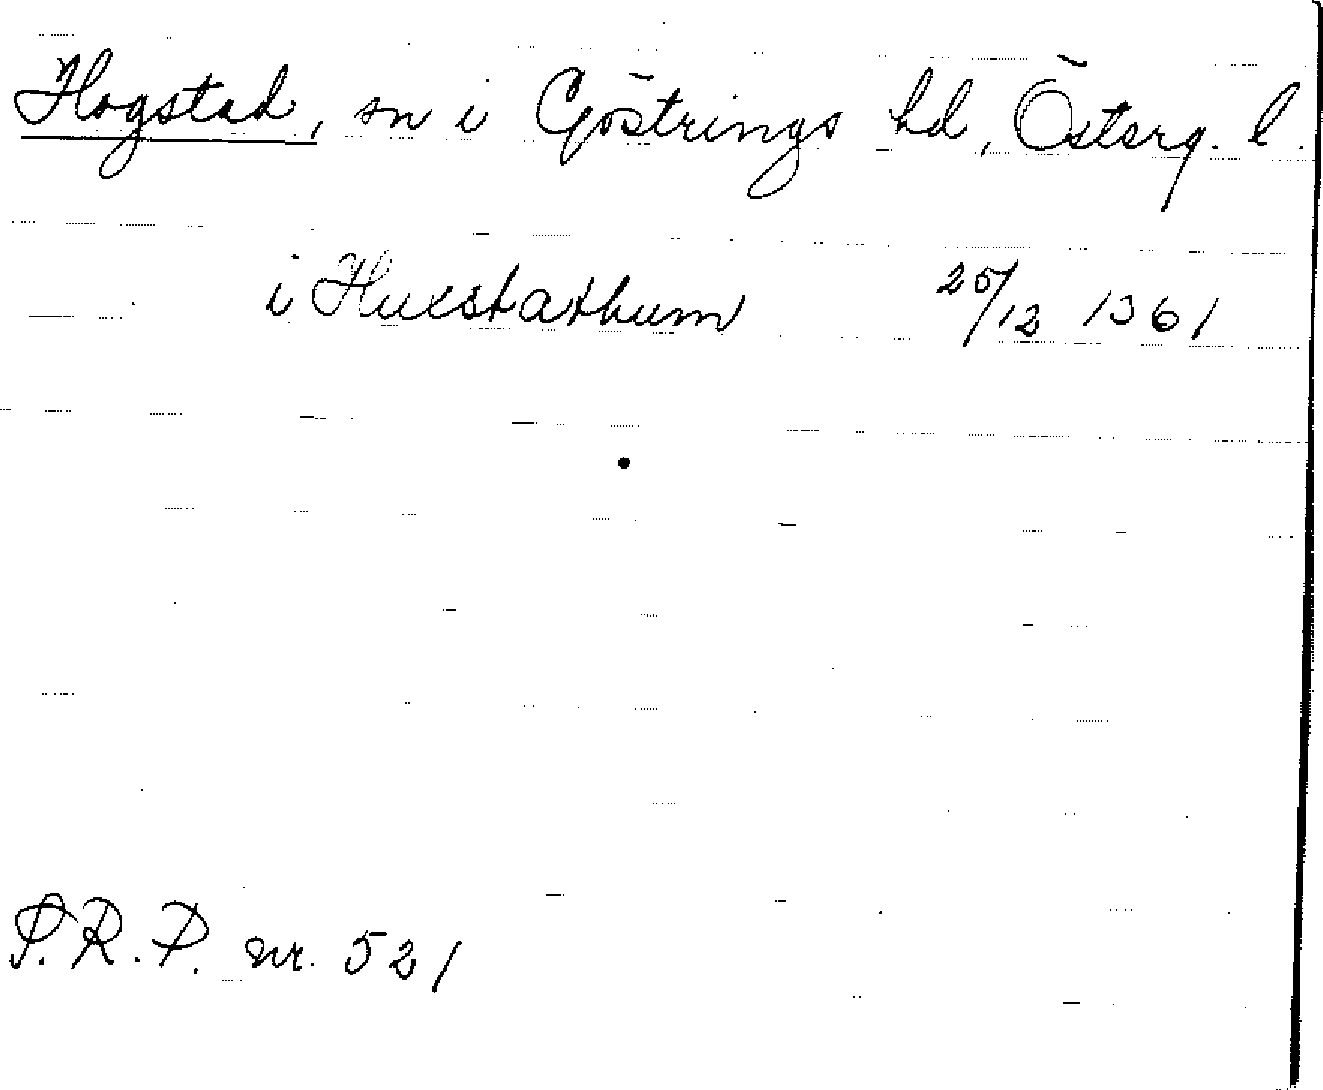 Hogstad, sn i Göstrings hd, Österg. l.
i Huxstathum 25/12 1361
S.R.P. nr. 521